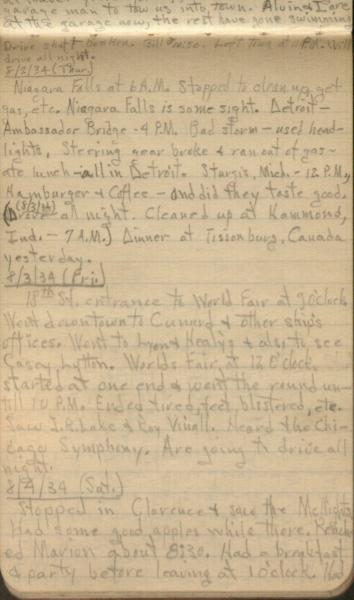 garage man to tow us into town. Alvin & I are
at the garage now, the rest have gone swimming
Drive shaft broken. Bill $10.50. Left Troy at 11 P.M. Will
drive all night.
8/2/34 (Thur.)
Niagara Falls at 6 A.M. Stopped to clean up, get
gas, etc. Niagara Falls is some sight. Detroit -
Ambassador Bridge - 4 P.M. Bad storm - used head-
lights, Steering gear broke & ran out of gas -
ate lunch - all in Detroit. Sturgis, Mich. - 12 P.M.,
Hamburger & Coffee - and did they taste good.
(8/3/34)
(Drove all night. Cleaned up at Hammond,
Ind. - 7 A.M.) Dinner at Tissonburg, Canada
yesterday.
8/3/34 (Fri.)
18th St. entrance to World Fair at 9 o'clock
Went downtown to Cunard & other ship's
offices. Went to Lyon & Healys & also to see
Casey Lytton. Worlds Fair at 12 o'clock,
started at one end & went the round un-
till 10 P.M. Ended tired, feet blistered, etc.
Saw J.R. Lake & Roy Vinall. Heard the Chi-
cago Symphony. Are going to drive all
night.
8/4/34 (Sat.)
Stopped in Clarence & saw the
Had some good apples while there. Reach-
ed Marion about 8:30. Had a breakfast
& party before leaving at 1 o'clock. Had